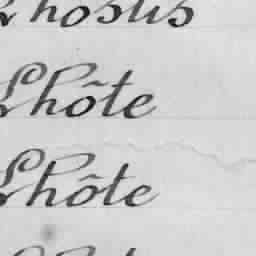 Lhostis
Lhôte
Lhôte